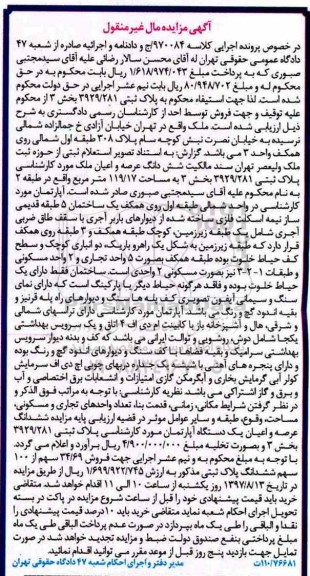 آگهی مزایده مال غیرمنقول
در خصوص پرونده اجرایی کلاسه ۹۷۰۰۸۴/ج و دادنامه و اجرائیه صادره از شعبه ۴۷
دادگاه عمومی حقوقی تهران له آقای محسن سالار رضائی علیه آقای سیدمجتبی
صبوری که به پرداخت مبلغ ۱/۶۱۸/۹۷۴/۰۴۳ ریال بابت محکوم به در حق
محکوم له و مبلغ ۸۰/۹۴۸/۷۰۲ ریال بابت نیم عشر اجرایی در حق دولت محکوم
شده است. لذا جهت استیفاء محکوم به پلاک ثبتی ۳۹۲۹/۲۸۱ بخش ۳ از محکوم
علیه توقیف و جهت فروش توسط احد از کارشناسان رسمی دادگستری به شرح
ذیل ارزیابی شده است. ملک واقع در تهران خیابان آزادی خ جمالزاده شمالی
نرسیده به خیابان نصرت نبش کوچه سام پلاک ۳۰۸ طبقه اول شمالی روی
همکف واحد ۳ می باشد. گزارش: به استناد تصویر استعلام ثبتی از حوزه ثبت
ملک ولیعصر تهران سند مالکیت شش دانگ عرصه و اعیان ملک مورد کارشناسی
پلاک ثبتی ۳۹۲۹/۲۸۱ بخش ۳ به مساحت ۱۱۹/۱۷ متر مربع واقع در طبقه ۲
به نام محکوم علیه آقای سیدمجتبی صبوری صادر شده است. آپارتمان مورد
کارشناسی در واحد شمالی طبقه اول روی همکف یک ساختمان ۵ طبقه قدیمی
ساز نیمه اسکلت فلزی ساخته شده از دیوارهای باربر آجری با سقف طاق ضربی
آجری شامل یک طبقه زیرزمین، کوچک طبقه همکف و ۳ طبقه روی همکف
قرار دارد که طبقه زیرزمین به شکل یک راهرو باریک، دو انباری کوچک و سطح
کف حیاط خلوت بوده طبقه همکف بصورت ۵ واحد تجاری و ۲ واحد مسکونی
و طبقات ۱-۲-۳ نیز بصورت مسکونی ۲ واحدی است. ساختمان فقط دارای یک
حیاط خلوت بوده و فاقد هرگونه حیاط دیگر یا پارکینگ است که دارای نمای
سنگ و سیمانی آیفون تصویری کف پله ها سنگ و دیوارهای راه پله قرنیز و
بقیه اندود گچ و رنگ می باشد. آپارتمان مورد کارشناسی دارای تراسهای شمالی
و شرقی، هال و آشپزخانه باز با کابینت ام دی اف ۴ اتاق و یک سرویس بهداشتی
یکجا شامل دوش، روشویی و توالت ایرانی می باشد که کف و بدنه دیوار سرویس
بهداشتی سرامیک و بقیه فضاها با کف سنگ و دیوارهای اندود گچ و رنگ بوده
و دارای پنجره های آهنی با شیشه تک جداره دربهای چوبی اچ دی اف سرمایش
کولر آبی گرمایش بخاری و آبگرمکن گازی امتیازات و انشعابات برق اختصاصی و آب
و برق و گاز اشتراکی می باشد. نظریه کارشناسی: با توجه به مراتب فوق الذکر و
در نظر گرفتن شرایط مکانی، زمانی، قدمت بنا، تعداد واحدهای تجاری و مسکونی،
مساحت، وقوع، طبقه، و سایر عوامل موثر در قضیه ارزیابی پایه مزایده ششدانگ
عرصه و اعیان یک دستگاه آپارتمان مورد کارشناسی پلاک ثبتی ۳۹۲۹/۲۸۱
بخش ۳ و بصورت تخلیه مبلغ ۴/۹۰۰/۰۰۰/۰۰۰ ریال برآورد و اعلام می گردد.
با توجه به مبلغ محکوم به و نیم عشر اجرایی جهت فروش ۳۴/۶۹ سهم از ۱۰۰
سهم ششدانگ پلاک ثبتی مذکور به ارزش ۱/۶۹۹/۹۲۲/۷۴۵ ریال از طریق مزایده
در تاریخ ۱۳۹۷/۸/۱۳ روز یکشنبه از ساعت ۱۰ الی ۱۱ اقدام خواهد شد. متقاضی
خرید باید قیمت پیشنهادی خود را قبل از ساعت شروع مزایده در پاکت در بسته
تحویل اجرای احکام شعبه نماید متقاضی خرید باید ۱۰ درصد قیمت پیشنهادی را
نقداً و الباقی را طی یک ماه بپردازد در صورت عدم پرداخت الباقی طی یک ماه
مبلغ پرداختی بنفع صندوق دولت ضبط و مزایده تجدید خواهد شد در صورت
تمایل جهت بازدید پنج روز قبل از موعد مقرر می توانید اقدام نمائید.
۱۱۰/۷۶۶۸۱ت مدیر دفتر و اجرای احکام شعبه ۴۷ دادگاه حقوقی تهران